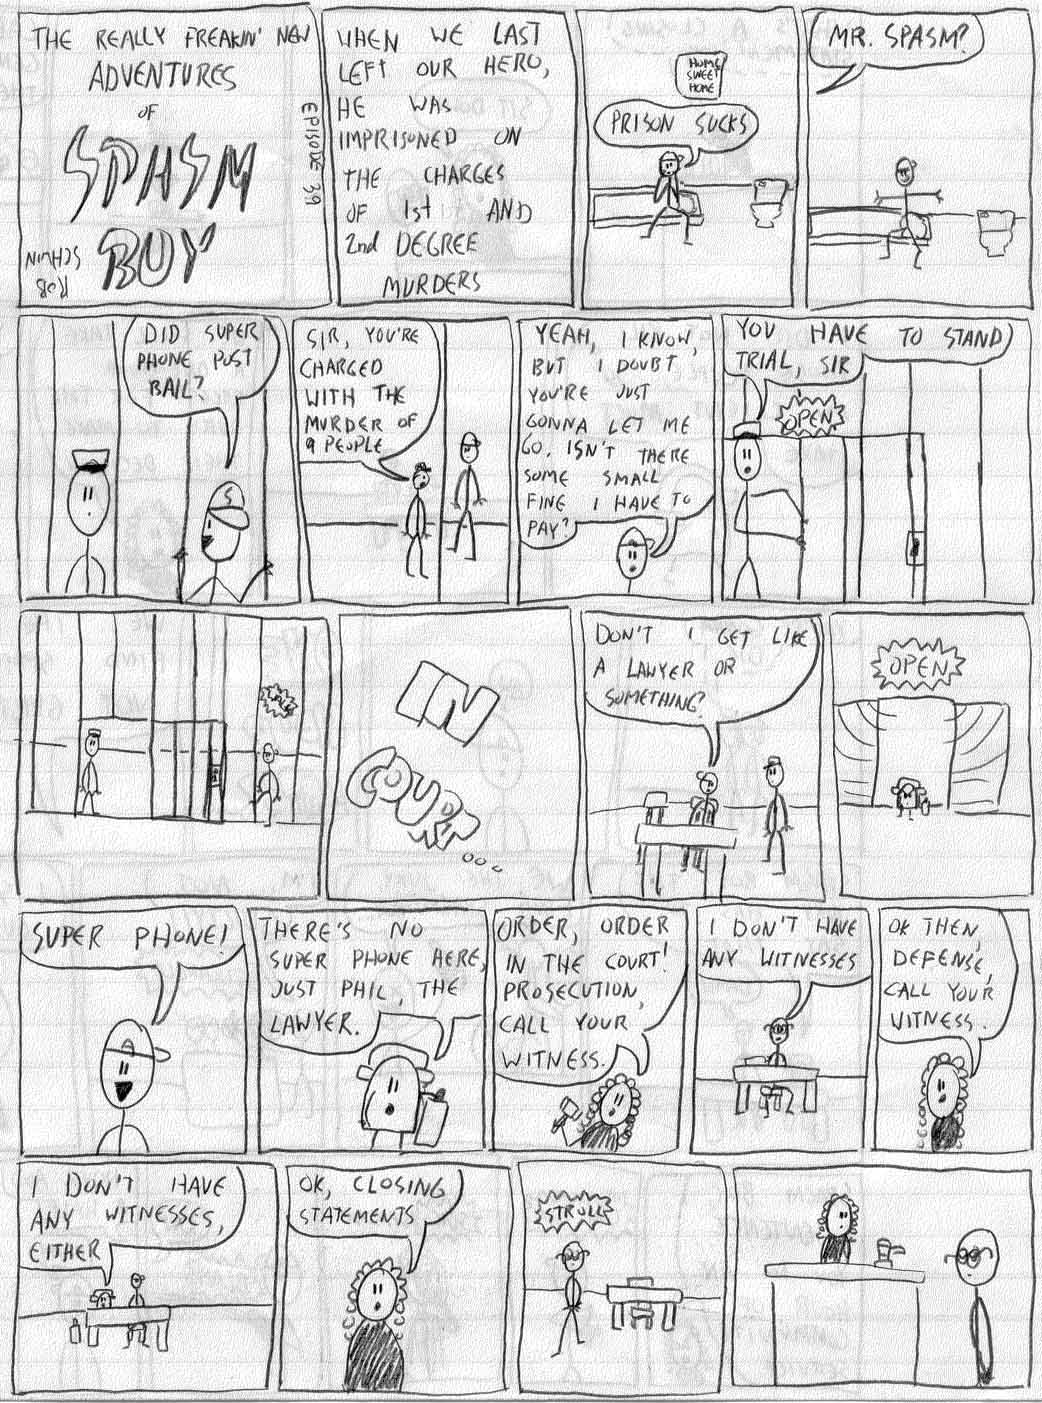 THE REALLY FREAKIN' NEW
ADVENTURES
OF
SPASM
BOY
ROB
SCHWIN
EPISODE 39
WHEN WE LAST
LEFT OUR HERO,
HE WAS
IMPRISONED ON
THE CHARGES
OF 1st AND
2nd DEGREE
MURDERS
HOME
SWEET
HOME
PRISON SUCKS
MR. SPASM?
DID SUPER
PHONE POST
BAIL?
SIR, YOU'RE
CHARGED
WITH THE
MURDER OF
9 PEOPLE
YEAH, I KNOW,
BUT I DOUBT
YOU'RE JUST
GONNA LET ME
GO. ISN'T THERE
SOME SMALL
FINE I HAVE TO
PAY?
YOU HAVE TO STAND
TRIAL, SIR
OPEN
IN
COURT
...
DON'T I GET LIKE
A LAWYER OR
SOMETHING?
OPEN
SUPER PHONE!
THERE'S NO
SUPER PHONE HERE,
JUST PHIL, THE
LAWYER.
ORDER, ORDER
IN THE COURT!
PROSECUTION,
CALL YOUR
WITNESS.
I DON'T HAVE
ANY WITNESSES
OK THEN,
DEFENSE,
CALL YOUR
WITNESS.
I DON'T HAVE
ANY WITNESSES,
EITHER
OK, CLOSING
STATEMENTS
STROLL